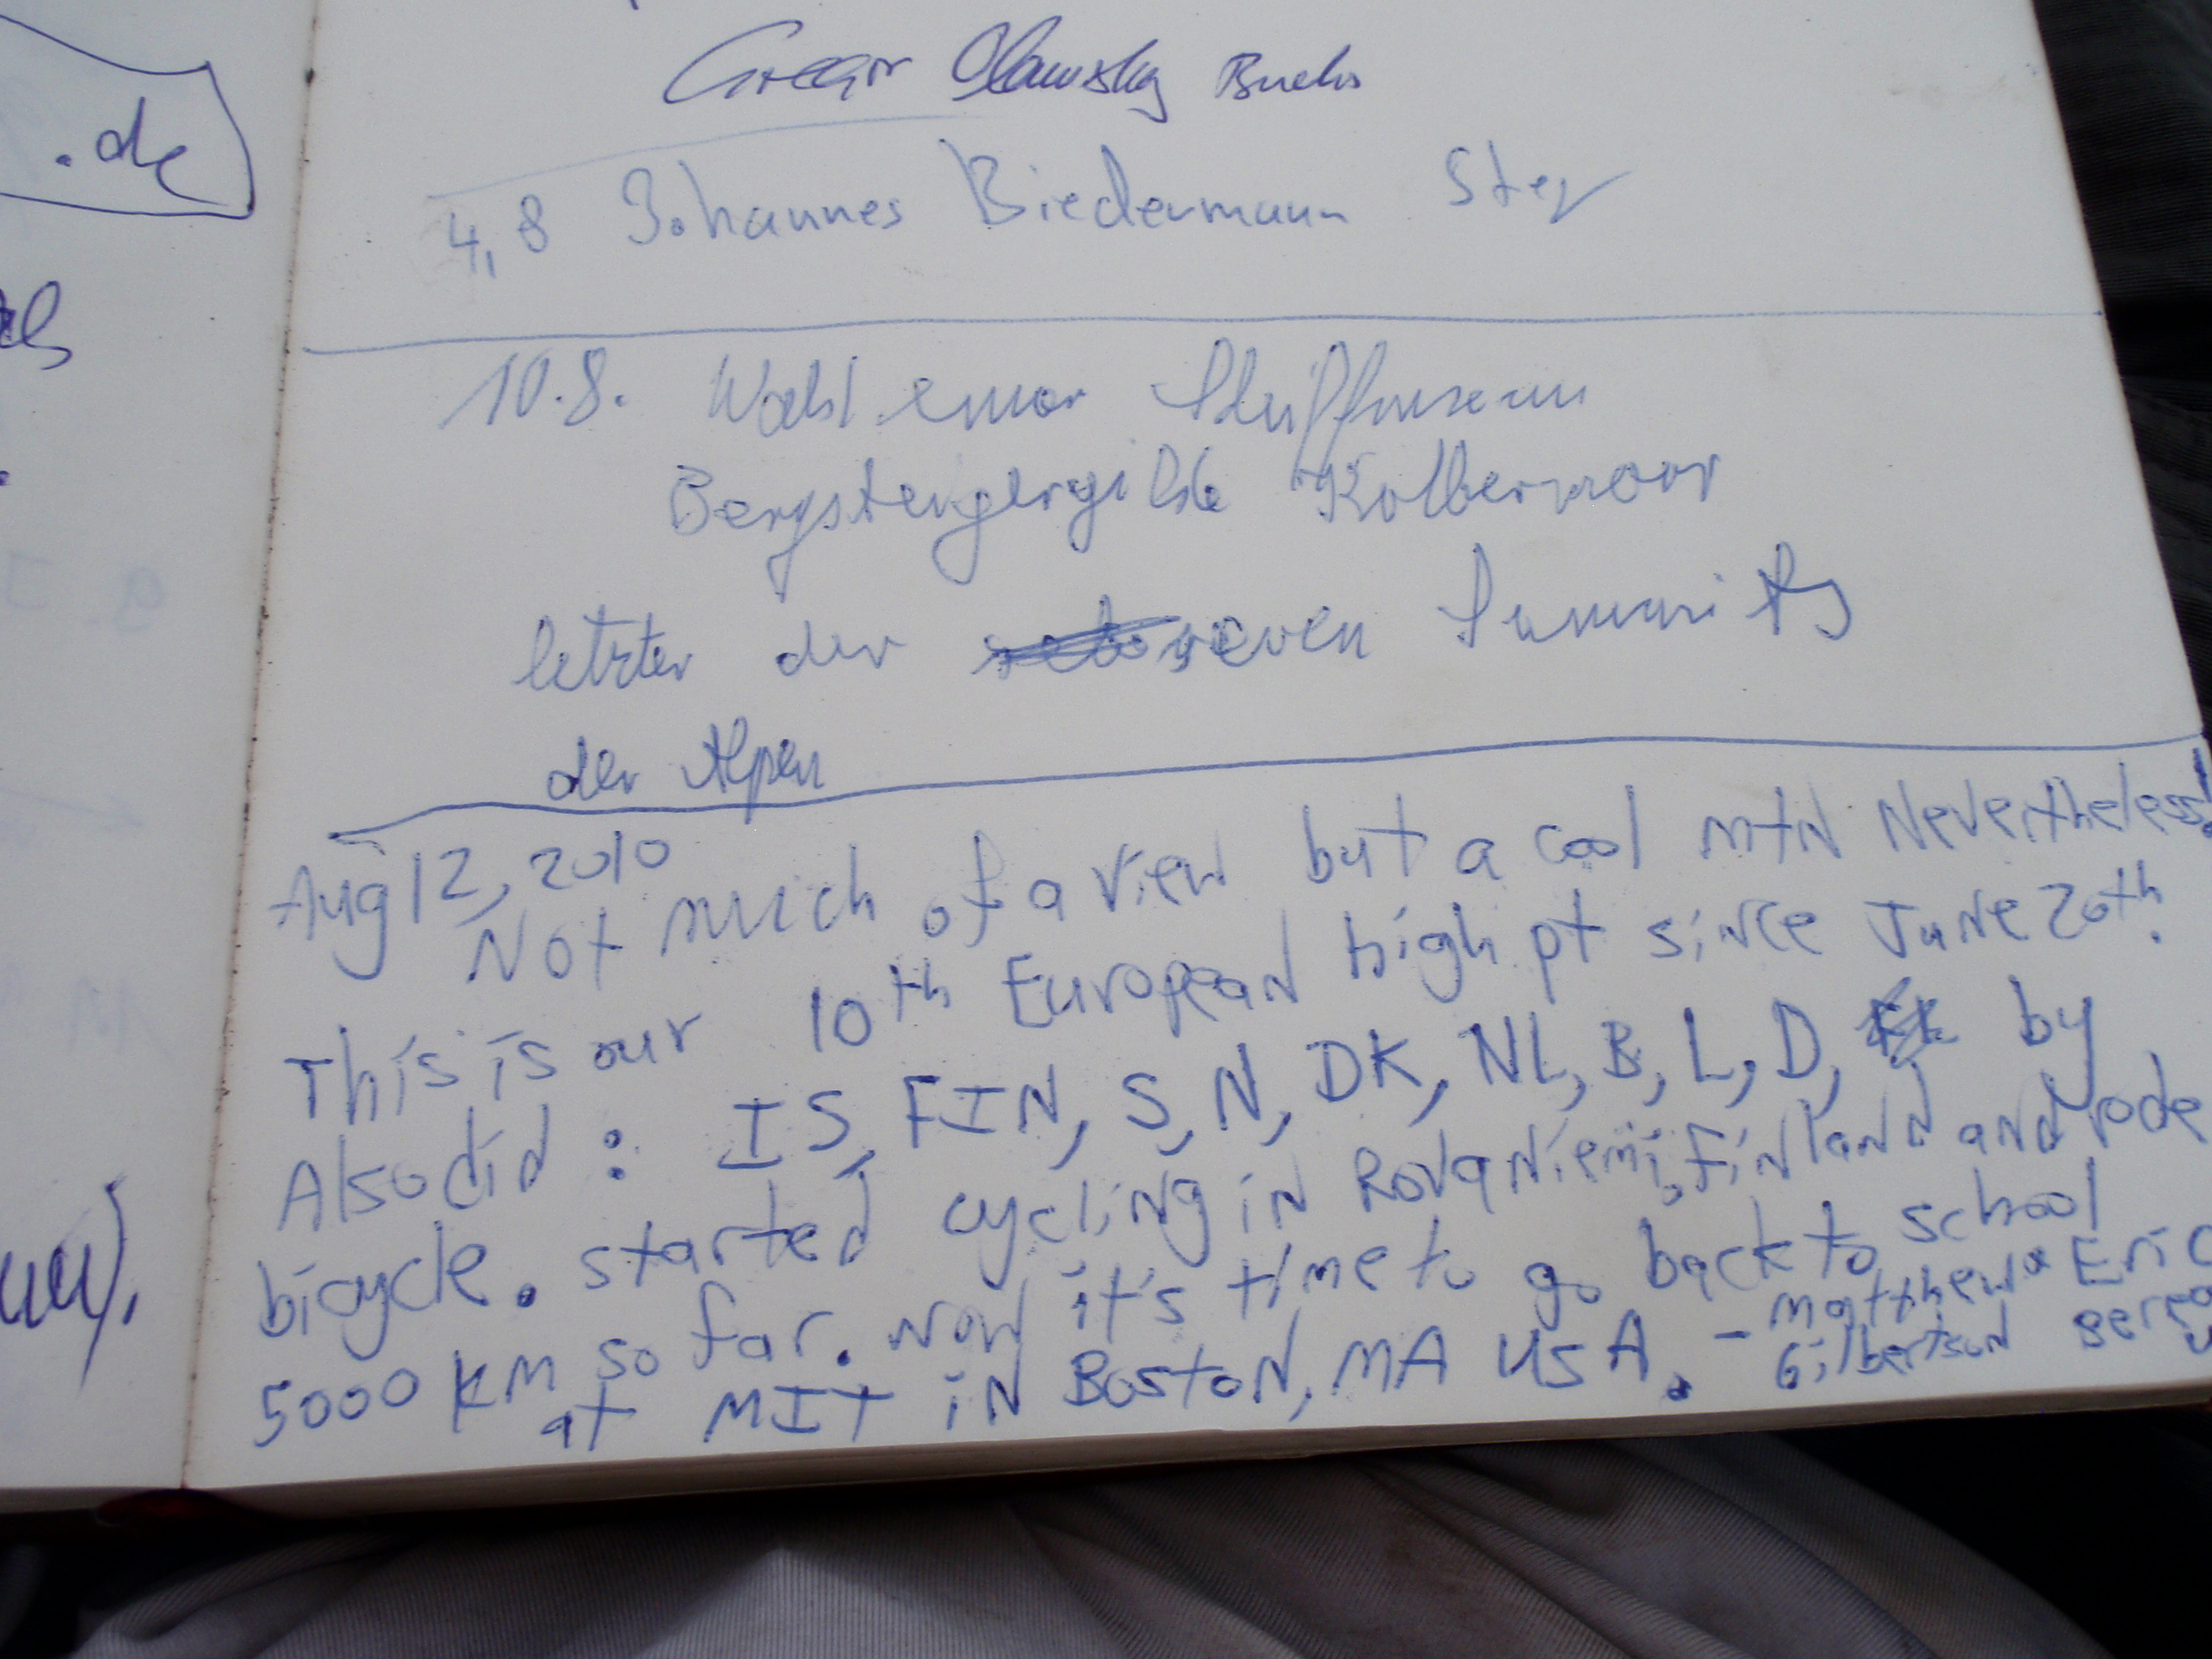 .de
Gregor Olawsky Buchs
4,8 Johannes Biedermann Steg
10.8.
Bergsteigergilde Kolbermoor
letzter der seven Summits
der Alpen
Aug 12, 2010
Not much of a view but a cool mtn nevertheless!
This is our 10th European high pt since June 20th.
Also did: IS, FIN, S, N, DK, NL, B, L, D, by
bicycle. Started cycling in Rovaniemi, Finland and rode
5000 km so far. Now it's time to go back to school
at MIT in Boston, MA USA. - Matthew & Eric
Gilbertson